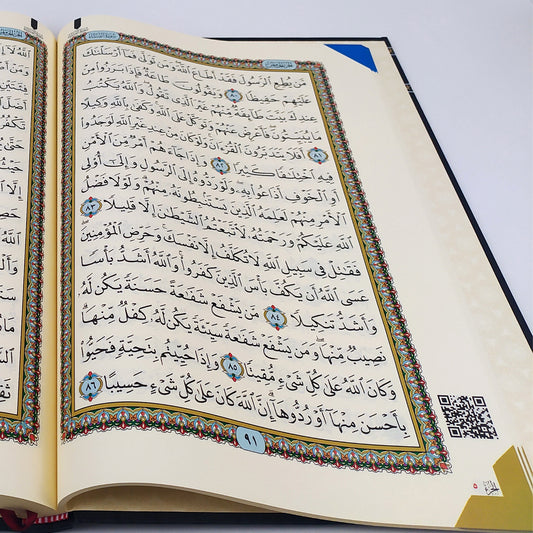 مَّن يُطِعِ ٱلرَّسُولَ فَقَدْ أَطَاعَ ٱللَّهَ وَمَن تَوَلَّىٰ فَمَآ أَرْسَلْنَٰكَ
عَلَيْهِمْ حَفِيظًا ٨٠ وَيَقُولُونَ طَاعَةٌ فَإِذَا بَرَزُوا۟ مِنْ
عِندِكَ بَيَّتَ طَآئِفَةٌ مِّنْهُمْ غَيْرَ ٱلَّذِى تَقُولُ وَٱللَّهُ يَكْتُبُ
مَا يُبَيِّتُونَ فَأَعْرِضْ عَنْهُمْ وَتَوَكَّلْ عَلَى ٱللَّهِ وَكَفَىٰ بِٱللَّهِ وَكِيلًا
٨١ أَفَلَا يَتَدَبَّرُونَ ٱلْقُرْءَانَ وَلَوْ كَانَ مِنْ عِندِ غَيْرِ ٱللَّهِ لَوَجَدُوا۟
فِيهِ ٱخْتِلَٰفًا كَثِيرًا ٨٢ وَإِذَا جَآءَهُمْ أَمْرٌ مِّنَ ٱلْأَمْنِ
أَوِ ٱلْخَوْفِ أَذَاعُوا۟ بِهِۦ وَلَوْ رَدُّوهُ إِلَى ٱلرَّسُولِ وَإِلَىٰٓ أُو۟لِى
ٱلْأَمْرِ مِنْهُمْ لَعَلِمَهُ ٱلَّذِينَ يَسْتَنۢبِطُونَهُۥ مِنْهُمْ وَلَوْلَا فَضْلُ
ٱللَّهِ عَلَيْكُمْ وَرَحْمَتُهُۥ لَٱتَّبَعْتُمُ ٱلشَّيْطَٰنَ إِلَّا قَلِيلًا ٨٣
فَقَٰتِلْ فِى سَبِيلِ ٱللَّهِ لَا تُكَلَّفُ إِلَّا نَفْسَكَ وَحَرِّضِ ٱلْمُؤْمِنِينَ
عَسَى ٱللَّهُ أَن يَكُفَّ بَأْسَ ٱلَّذِينَ كَفَرُوا۟ وَٱللَّهُ أَشَدُّ بَأْسًا
وَأَشَدُّ تَنكِيلًا ٨٤ مَّن يَشْفَعْ شَفَٰعَةً حَسَنَةً يَكُن لَّهُۥ
نَصِيبٌ مِّنْهَا وَمَن يَشْفَعْ شَفَٰعَةً سَيِّئَةً يَكُن لَّهُۥ كِفْلٌ مِّنْهَا
وَكَانَ ٱللَّهُ عَلَىٰ كُلِّ شَىْءٍ مُّقِيتًا ٨٥ وَإِذَا حُيِّيتُم بِتَحِيَّةٍ فَحَيُّوا۟
بِأَحْسَنَ مِنْهَآ أَوْ رُدُّوهَآ إِنَّ ٱللَّهَ كَانَ عَلَىٰ كُلِّ شَىْءٍ حَسِيبًا ٨٦
٩١
الجزء ٥